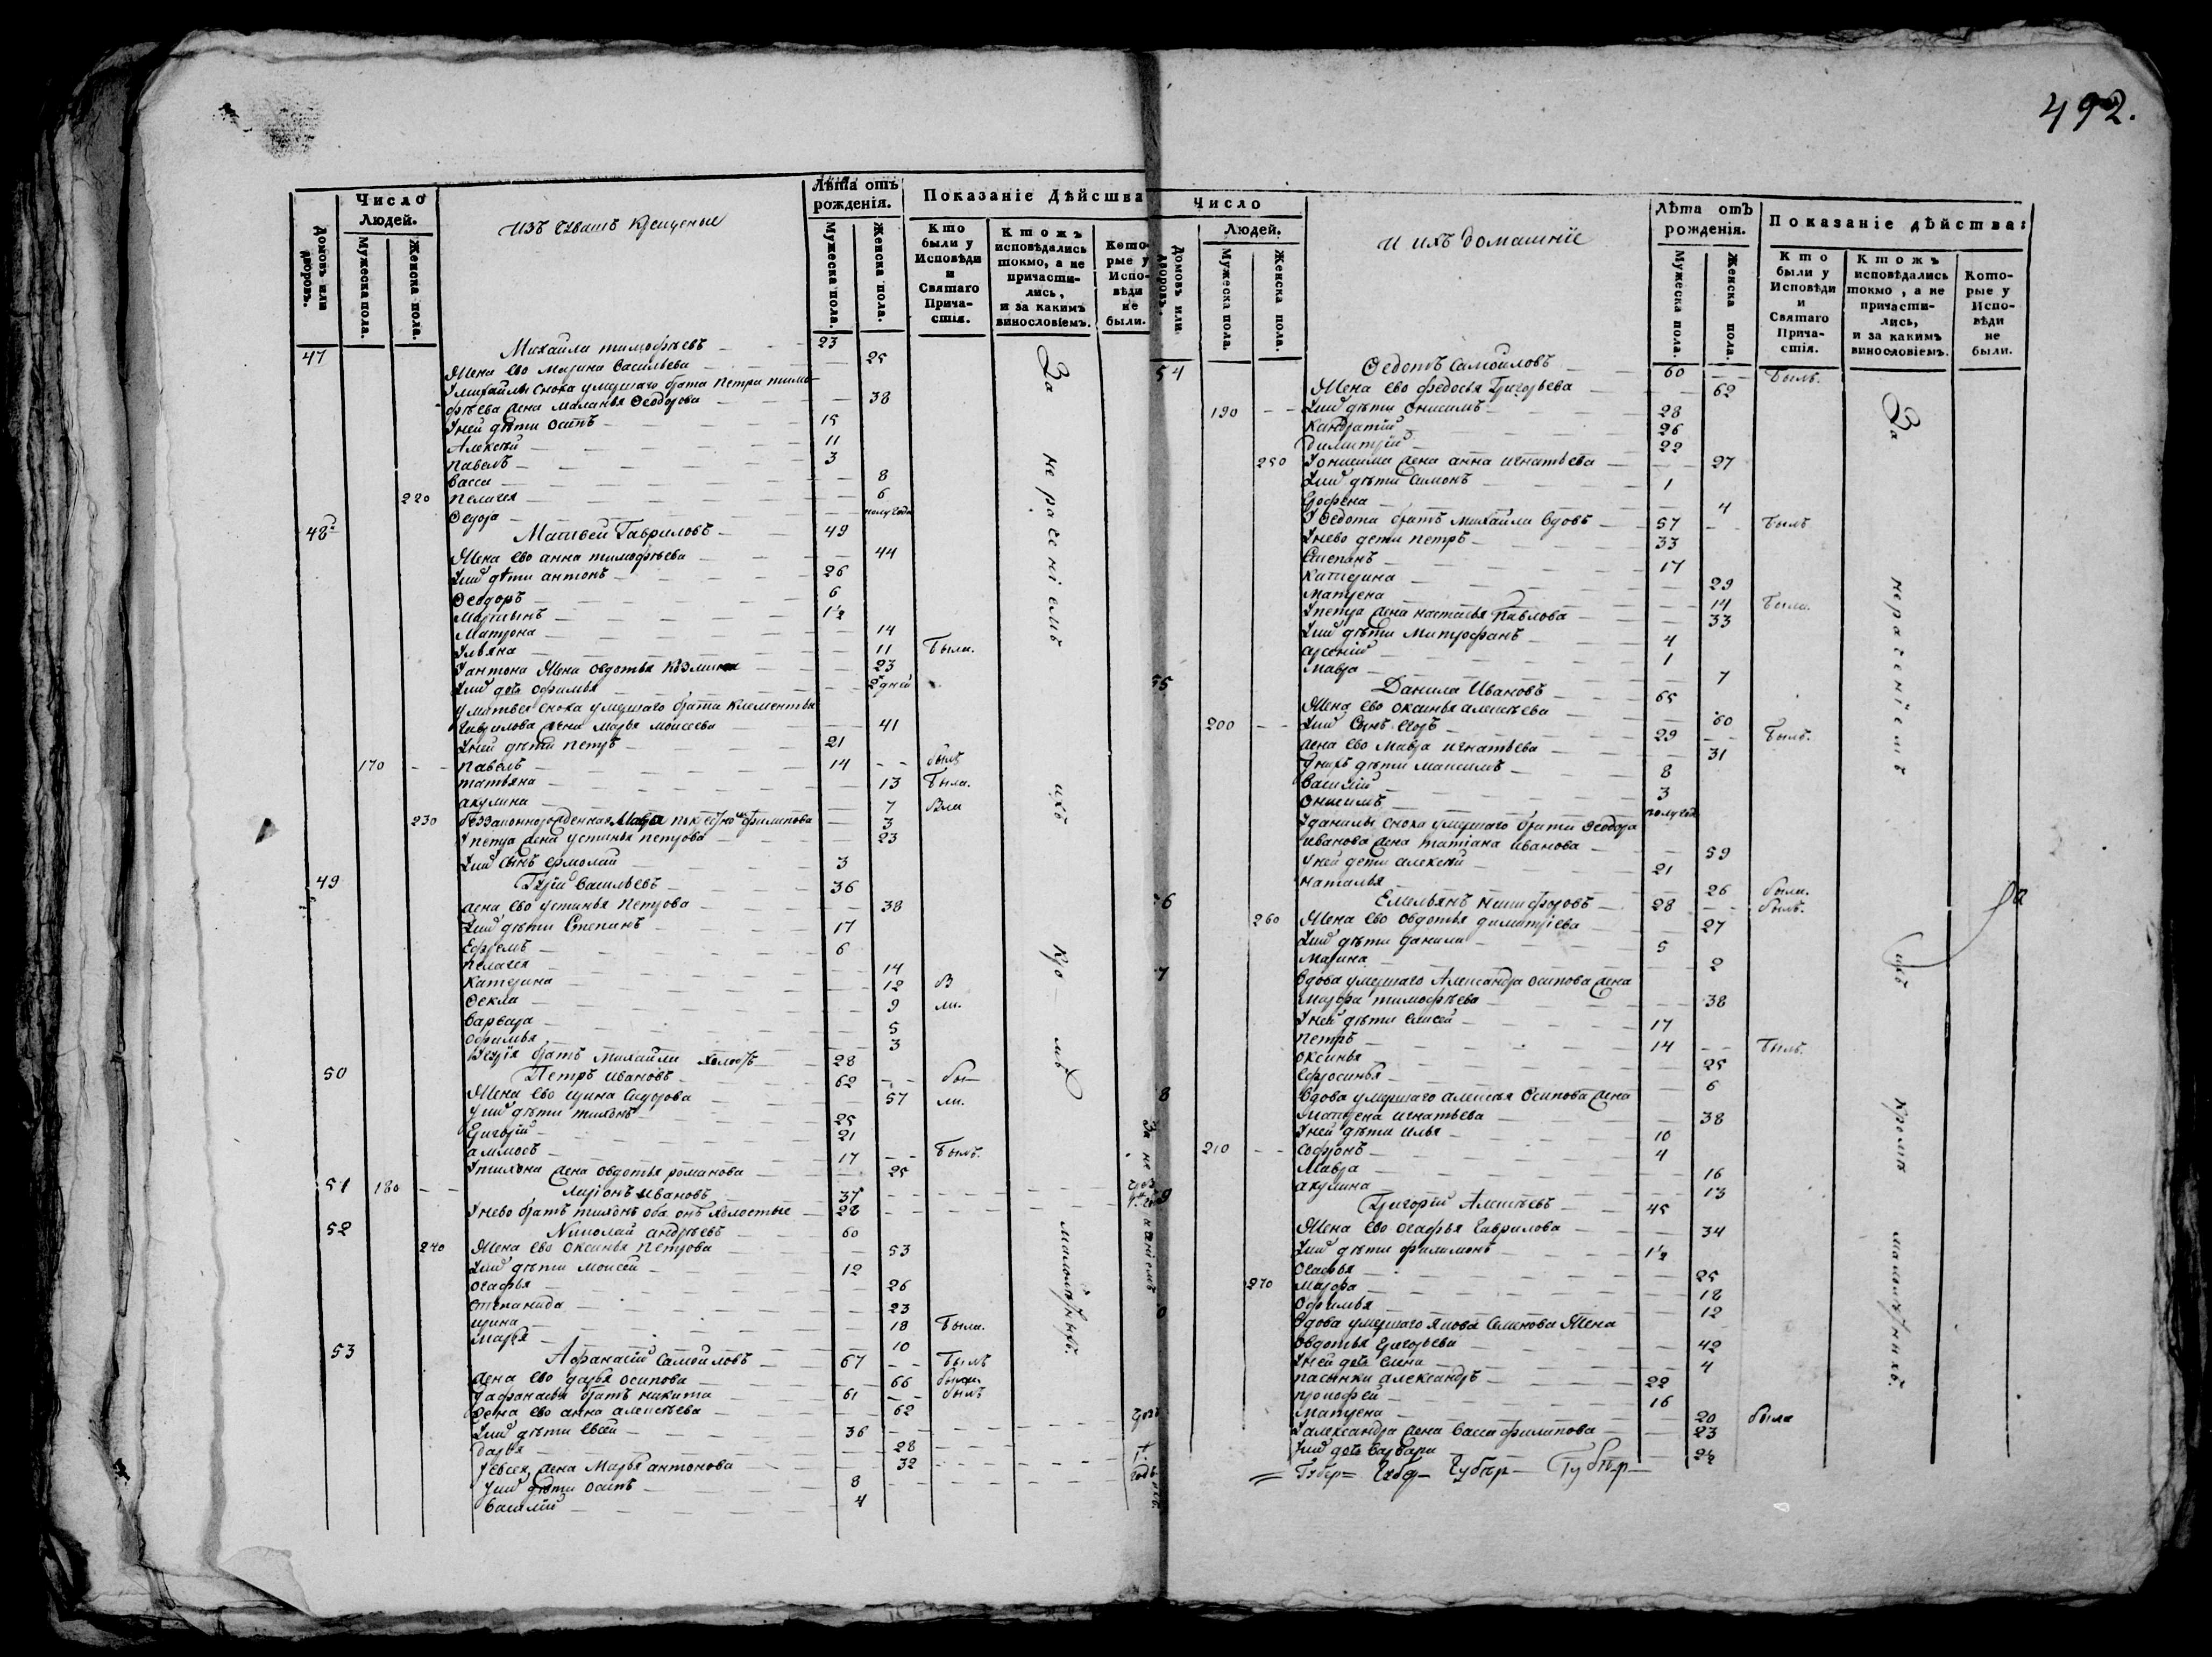 492.
Число
Людей.
Домовъ или дворовъ.
Мужеска пола.
Женска пола.
изъ чувашъ крещеные
Лѣта отъ
рожденія.
Мужеска пола.
Женска пола.
Показаніе Дѣйства
Кто были у Исповѣди и Святаго Прича-стія.
Ктожъ исповѣдались токмо, а не причасти-лись, и за какимъ винословіемъ.
Кото-рые у Испо-вѣди не были.
47 Михайла тимофѣевъ 23
Жена ево Марина Васильева 25
У михайлы сноха умершаго брата Петра тимо
фѣева жена Маланья Ѳеодорова 38
У ней дѣти осипъ 15
Алексѣй 11
Павелъ 3
васса 8
220 пелагея 6
Ѳедора полугода
48 Матвей Гавриловъ 49
Жена ево анна тимофѣева 44
У них дѣти антонъ 26
Ѳеодоръ 6
Мартынъ 1½
Матрона 14
Ульяна 11 Была.
У антона Жена овдотья Козмина 23
У них дочь офимья 2 дней
у матвея сноха умершаго брата Клементья
Гаврилова жена Марья Моисеева 41
У ней дѣти петръ 21
170 Павелъ 14 былъ
татьяна 13 Была.
акулина 7
230 беззаконнорожденная Мавра филипова 3
У петра жена устинья петрова 23
У них сынъ ермолай 3
49 Гурій Васильевъ 36
жена ево устинья Петрова 38
У них дѣти Степанъ 17
Ефремъ 6
Пелагея 14
Катерина 12
Ѳекла 9
Варвара 5
Офимья 3
У Гурія братъ михайла холостъ 28
50 Петръ Ивановъ 62 бы-
Жена ево ирина Сидорова 57 ли.
У них дѣти тихонъ 25
Григорій 21
аммосъ 17 Былъ.
У тихона жена овдотья романова 25
51 180 Ларіонъ Ивановъ 37
У нево братъ тихонъ оба онѣ холостые 28
52 Николай андрѣевъ 60
240 Жена ево оксинья Петрова 53
У них дѣти Моисей 12
огафья 26
степанида 23
ирина 18 Была.
Марья 10
53 Афанасій Самойловъ 67 Былъ
жена ево дарья осипова 66 была
У афанасья братъ никита 61 былъ
жена ево анна алексѣева 62
У них дѣти Евсей 36
дарья 28
У евсея жена Марья антонова 32
У них дѣти осипъ 8
Василій 4
За нераченіемъ ихъ кромѣ малолѣтныхъ.
Число
Людей.
Домовъ или дворовъ.
Мужеска пола.
Женска пола.
и ихъ домашніе
Лѣта отъ
рожденія.
Мужеска пола.
Женска пола.
Показаніе дѣйства:
Кто были у Исповѣди и Святаго Прича-стія.
Ктожъ исповѣдались токмо, а не причасти-лись, и за какимъ винословіемъ.
Кото-рые у Испо-вѣди не были.
54 Ѳедотъ Самойловъ 60 Былъ.
Жена ево федосья Григорьева 62
190 У них дѣти Онисимъ 28
Кандратій 26
Димитрій 22
250 У онисима жена анна игнатьева 27
У них дѣти Симонъ 1
Ерофена 4
У Ѳедота братъ михайла вдовъ 57 Былъ
У нево дети петръ 33
Степанъ 17
Катерина 29
матрена 14 Была.
У петра жена наталья Павлова 33
У них дѣти Митрофанъ 4
арсеній 1
мавра 7
55 Данила Ивановъ 65
Жена ево оксинья алексѣева 60
200 У них сынъ егоръ 29 Былъ.
жена ево Мавра игнатьева 31
У них дѣти максимъ 8
Василій 3
Онисимъ полугода
У данилы сноха умершаго брата Ѳеодора
иванова жена татіана иванова 59
У ней дети алексѣй 21
наталья 26 была.
56 Емельянъ никифоровъ 28 былъ.
260 Жена ево овдотья димитріева 27
У них дѣти данила 5
марина 2
57 Вдова умершаго Александра осипова жена
марфа тимофѣева 38
У ней дѣти елисей 17
петръ 14 Былъ.
оксинья 25
ефросинья 6
58 Вдова умершаго алексѣя Осипова жена
матрена игнатьева 38
У ней дѣти илья 10
210 софронъ 4
мавра 16
акулина 13
59 Григорій Алексѣевъ 45
Жена ево огафья гаврилова 34
У них дѣти филимонъ 1½
огафья 25
270 марфа 18
офимья 12
60 Вдова умершаго якова Семенова Жена
овдотья григорьева 42
У ней дочь елена 4
пасынки александръ 22
прокофей 16
матрена 20 была
У александра жена васса филипова 23
У них дочь варвара
За нераченіемъ ихъ кромѣ малолѣтныхъ.